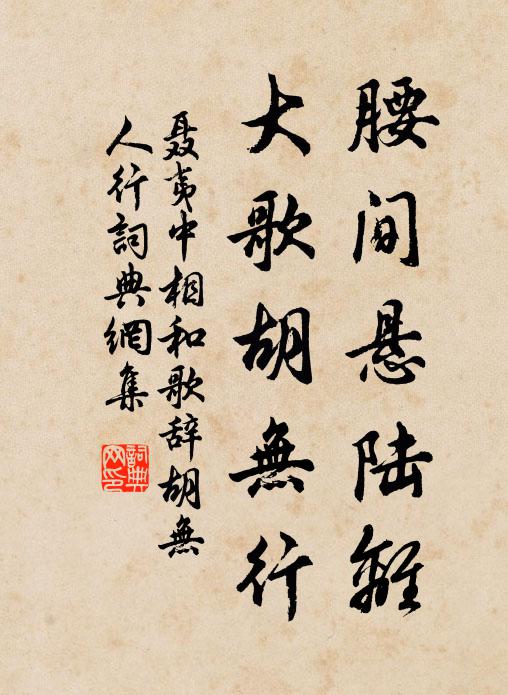 腰间悬陆離
大歌胡無行
聂夷中相和歌辞胡無
人行詞典網集
詞典网印